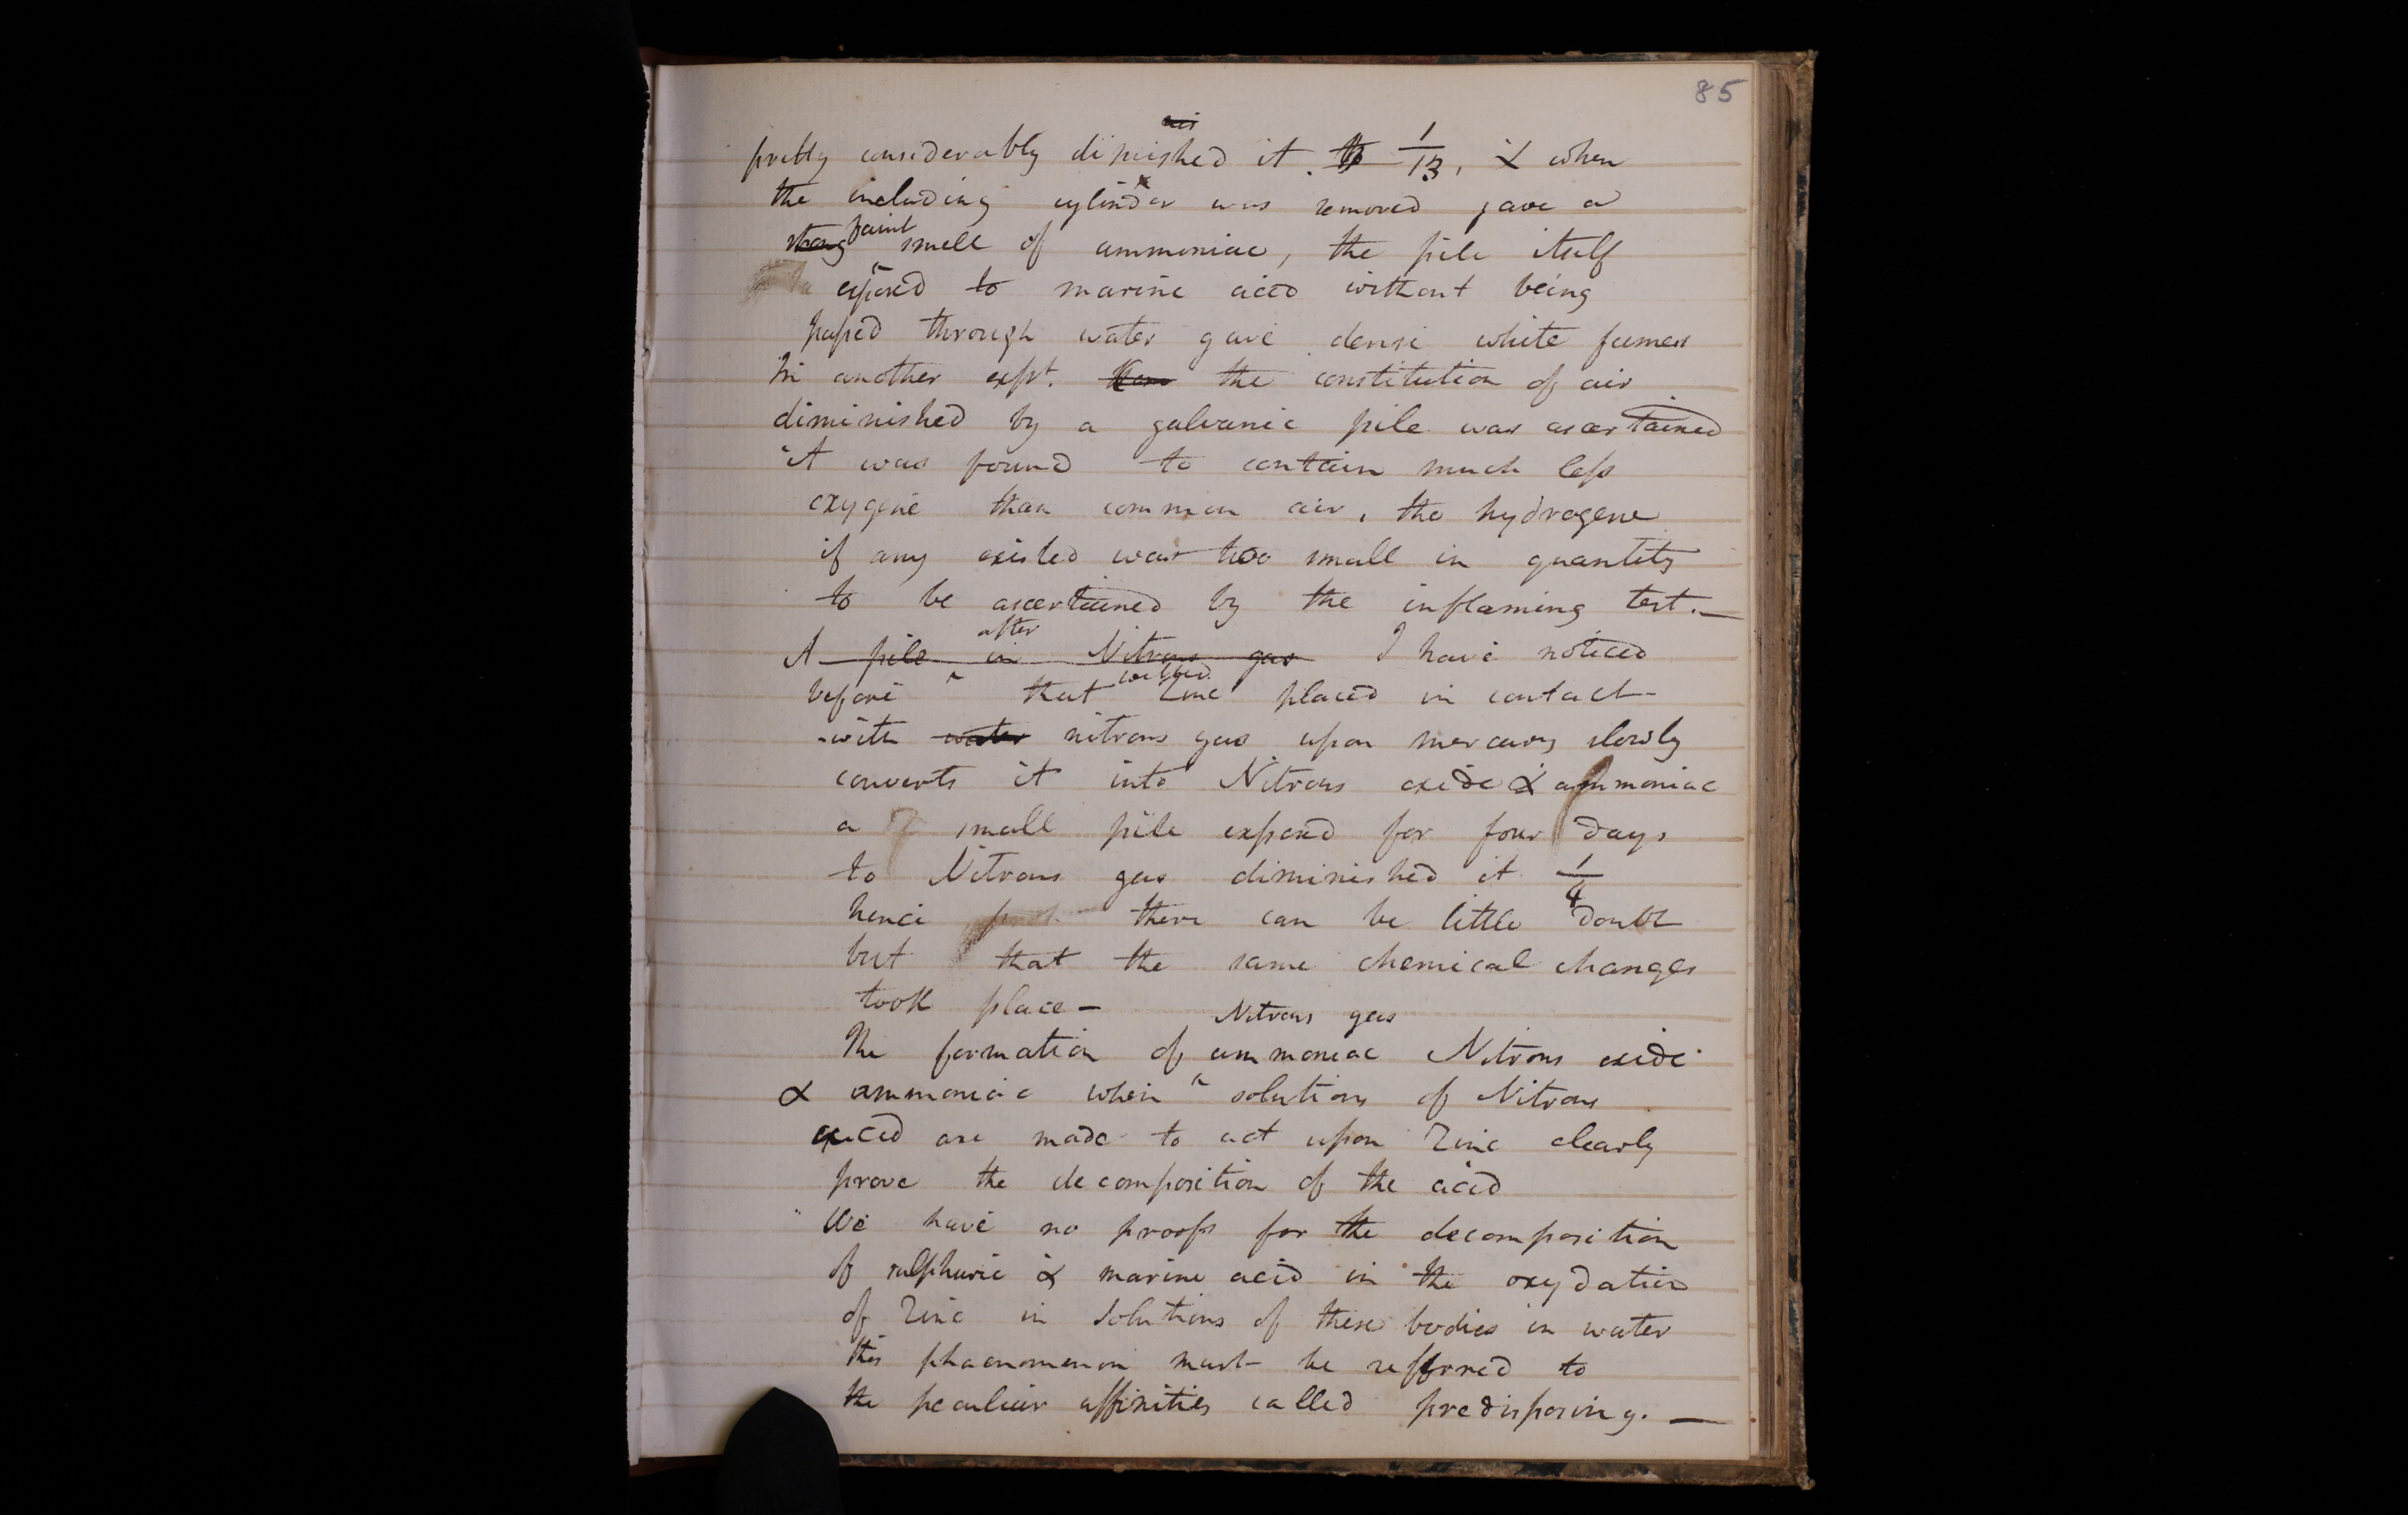 85
pretty considerably dimished it. to 1/13, & when
the including cylinder was removed gave a
strong faint smell of ammoniac, the pile itself
exposed to marine acid without being
passed through water gave dense white fumes
In another expt. the constitution of air
diminished by a galvanic pile was ascertained
it was found to contain much less
oxygene than common air, the hydrogene
if any existed was too small in quantity
to be ascertained by the inflaming test.—
after
A pile in Nitrous gas I have noticed
wetted
before that Zinc placed in contact
with water nitrous gas upon mercury slowly
converts it into Nitrous oxide & ammoniac
a small pile exposed for four days
to Nitrous gas diminished it 1/4
hence there can be little doubt
but that the same chemical changes
took place –
Nitrous gas
The formation of ammoniac Nitrous oxide
& ammoniac when solutions of Nitrous
acid are made to act upon Zinc clearly
prove the decomposition of the acid
We have no proofs for the decomposition
of sulphuric & marine acid in the oxydation
of Zinc in solutions of these bodies in water
this phaenomenon must be refferred to
the peculiar affinities called predisposing. —